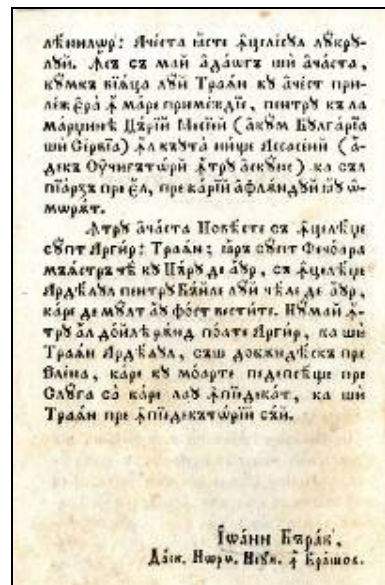 лѣнилѡр: Ачѣста ꙗсте ꙟцелесул лꙋкрꙋ-
лꙋй. Ꙟсъ съ май ада́ѡгъ шѝ ача́ста,
кꙋ́мкъ вїа́ца лꙋй Траїа́н кꙋ аче́ст при-
леж єра̀ ꙟ маре примѣждїе, пентрꙋ къ ла
марџинѣ Цѣрїй Мисїей (акꙋ́м Бꙋлга́рїа
шѝ Се́рвїа) ꙟл къꙋта нище Ассасе́нй (а-
декъ Оу҆чигъто́рй ꙟтрꙋ аскꙋнс) ка съл
пїа́рзъ пре є҆́л, пре ка́рїй афлѫ́ндꙋй ꙗꙋ ѡ-
мѡрѫ́т.
Ꙟтрꙋ ача́ста Пове́сте съ ꙟцелѣ́џе
сꙋпт Арги́р: Траїа́н; ꙗръ сꙋпт Фечо́ара
мъꙗ́стръ чѣ кꙋ Пъ́рꙋ де а́ꙋр, съ ꙟцелѣ́џе
Ардѣ́лꙋл пентрꙋ Бъ́йле лꙋй чѣле де а́ꙋр,
ка́ре де мꙋлт аꙋ фо́ст вести́те. Нꙋма́й ꙟ-
трꙋ а́л до́йлѣ рѫнд по́ате Арги́р, ка шѝ
Траїа́н Ардѣ́лꙋл, съш добѫндѣ́скъ пре
Еле́на, ка́ре кꙋ мо́арте педепсѣ́џе пре
Слꙋ́га са̀ ка́ре лаꙋ ꙟпїедека́т, ка шѝ
Траїа́н пре ꙟпїедекъто́рїй съ́й.
Їѡа́нн Бъра́к,
Даск. Нѡрм. Неꙋн. ꙟ Брашов.